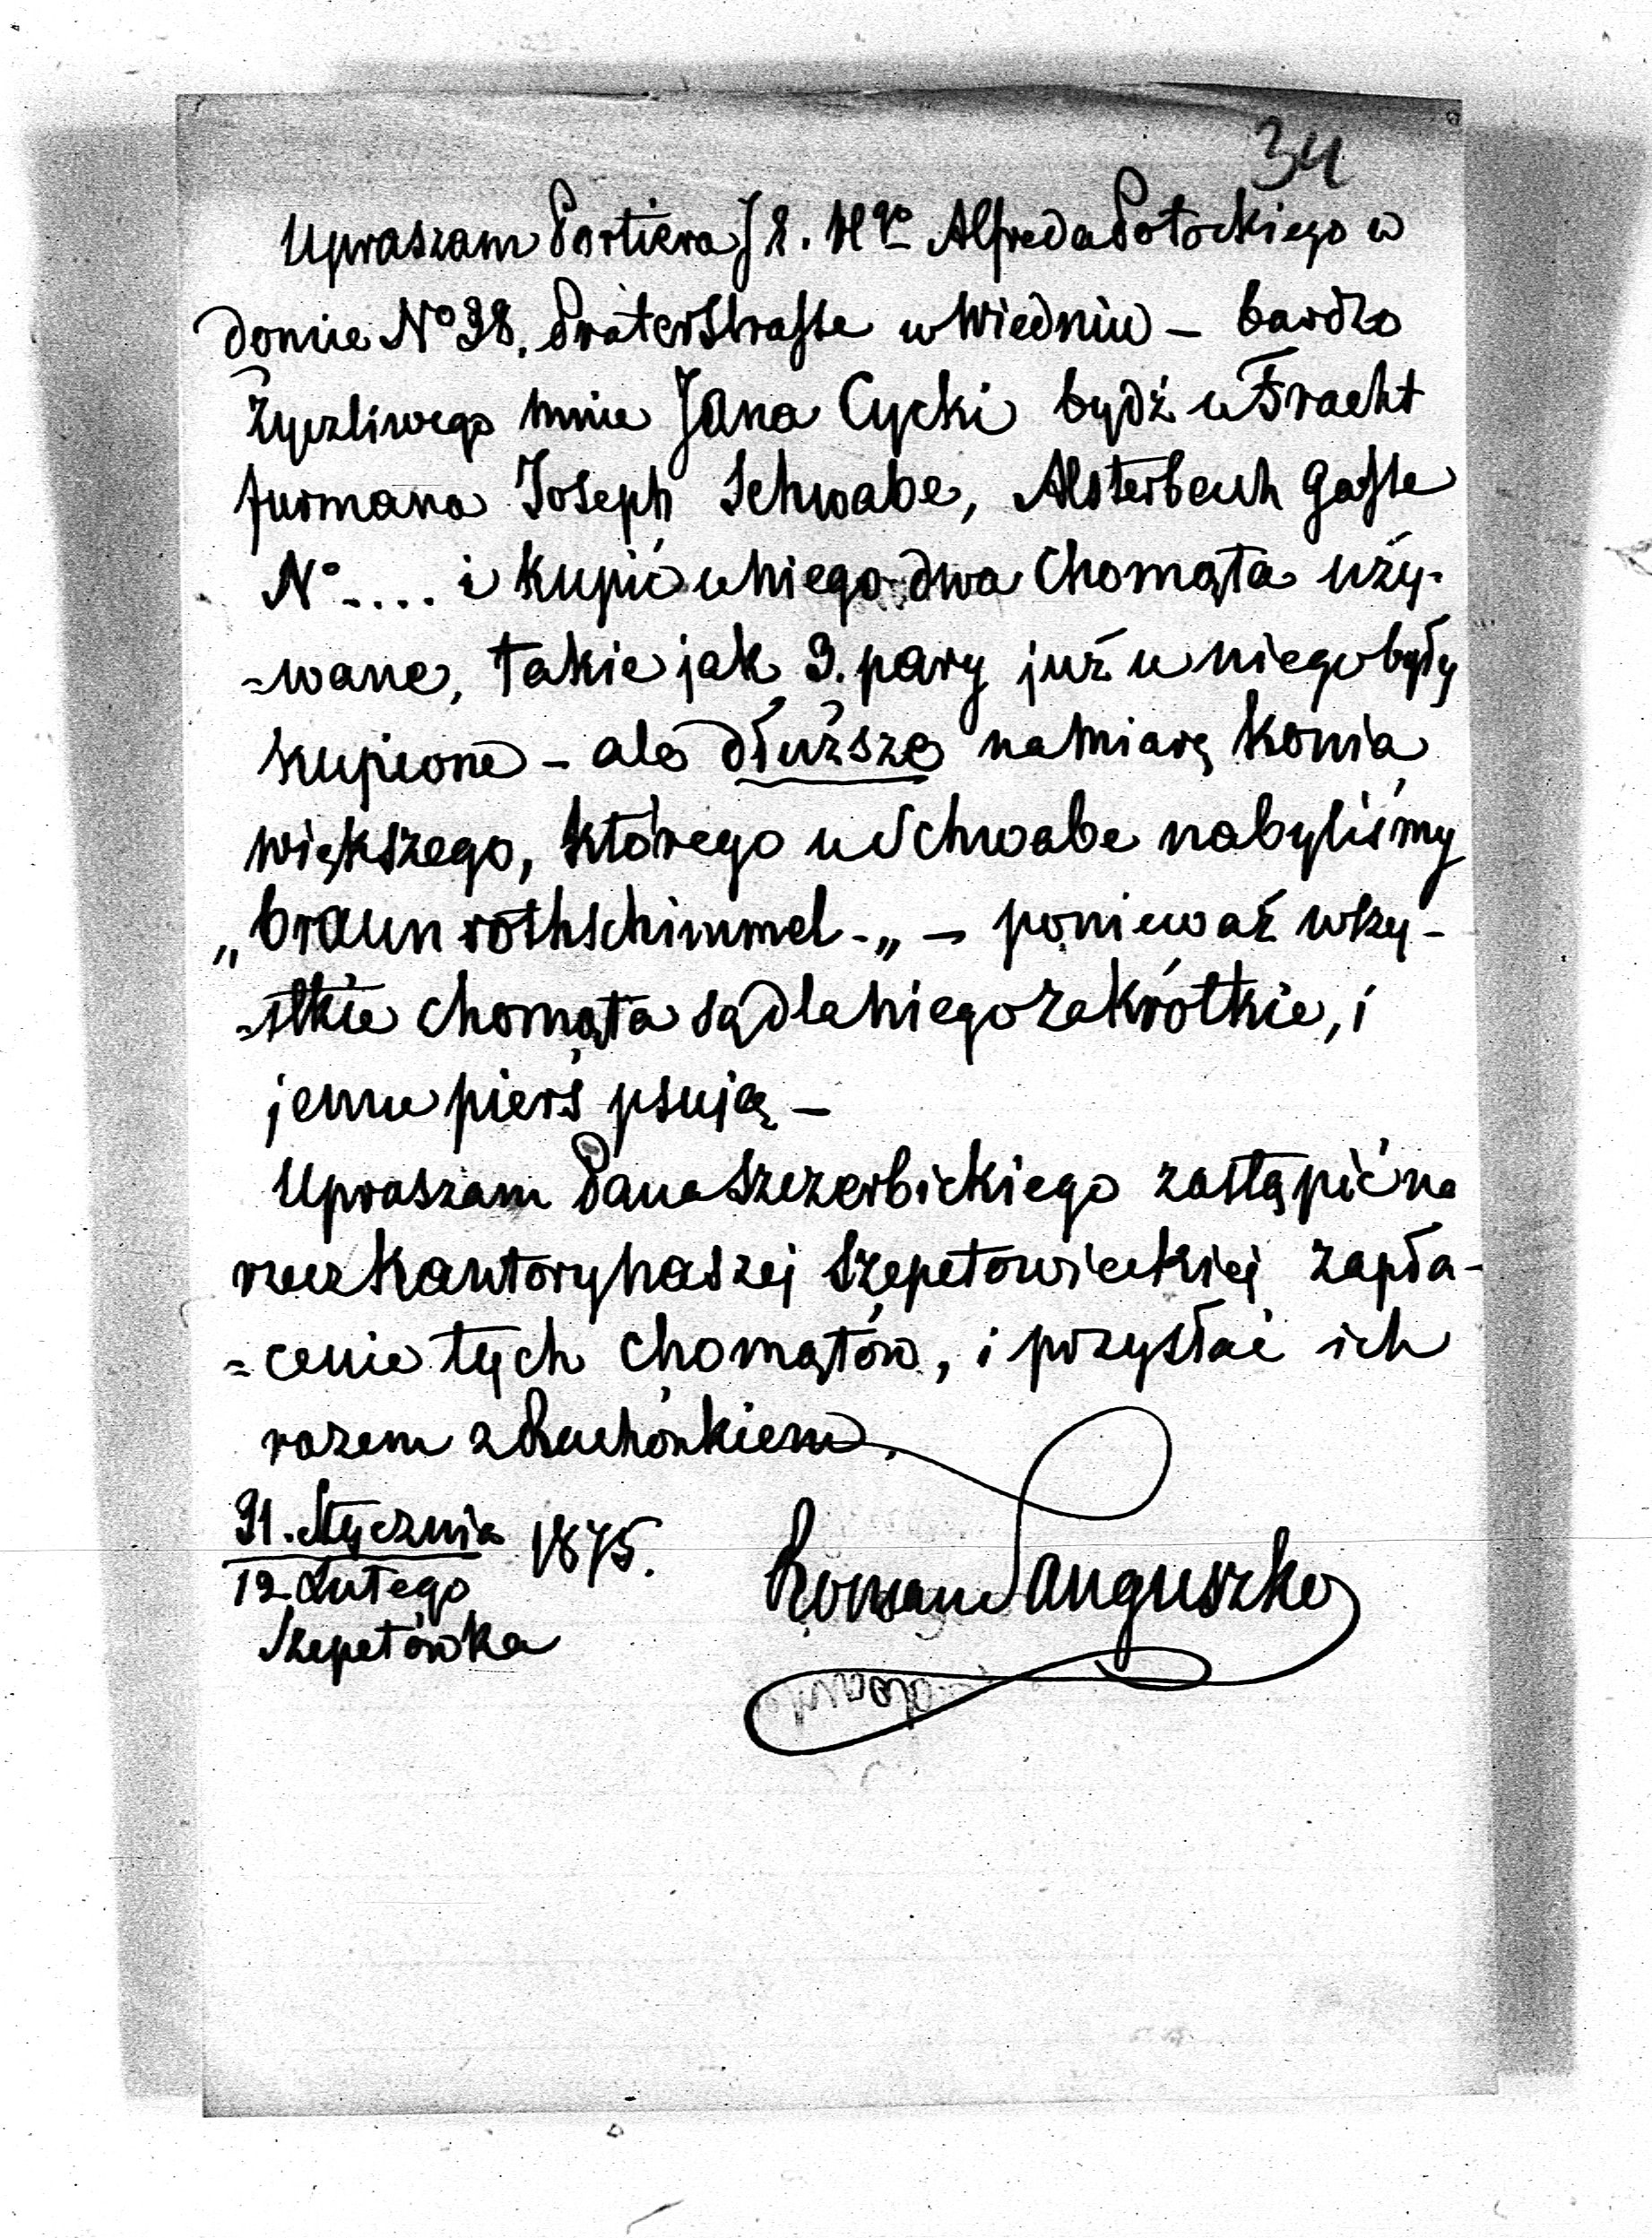 34
Upraszam Portiera J E. Hgo Alfreda Potockiego w
domie No 38. Praterstrasse w Wiedniu – bardzo
życzliwego mnie Jana Cycki bydź u Fracht
furmana Joseph Schwabe, Alsterbach Gasse
No .... i kupić u niego dwa chomąta uży-
=wane, takie jak 3. pary już u niego były
kupione – ale dłuższe na miarę konia
większego, którego u Schwabe nabyliśmy
„braun rothschimmel -„ – ponieważ wszy-
=stkie chomąta są dla niego za krótkie, i
jemu pierś psują –
Upraszam Pana Szczerbickiego zastąpić na
rzecz Kantory naszej Szepetowieckiej zapła-
=cenie tych chomątów, i przysłać ich
razem z Rachónkiem.
31. Stycznia 1875.
12 Lutego
Szepetówka
Roman Sanguszko